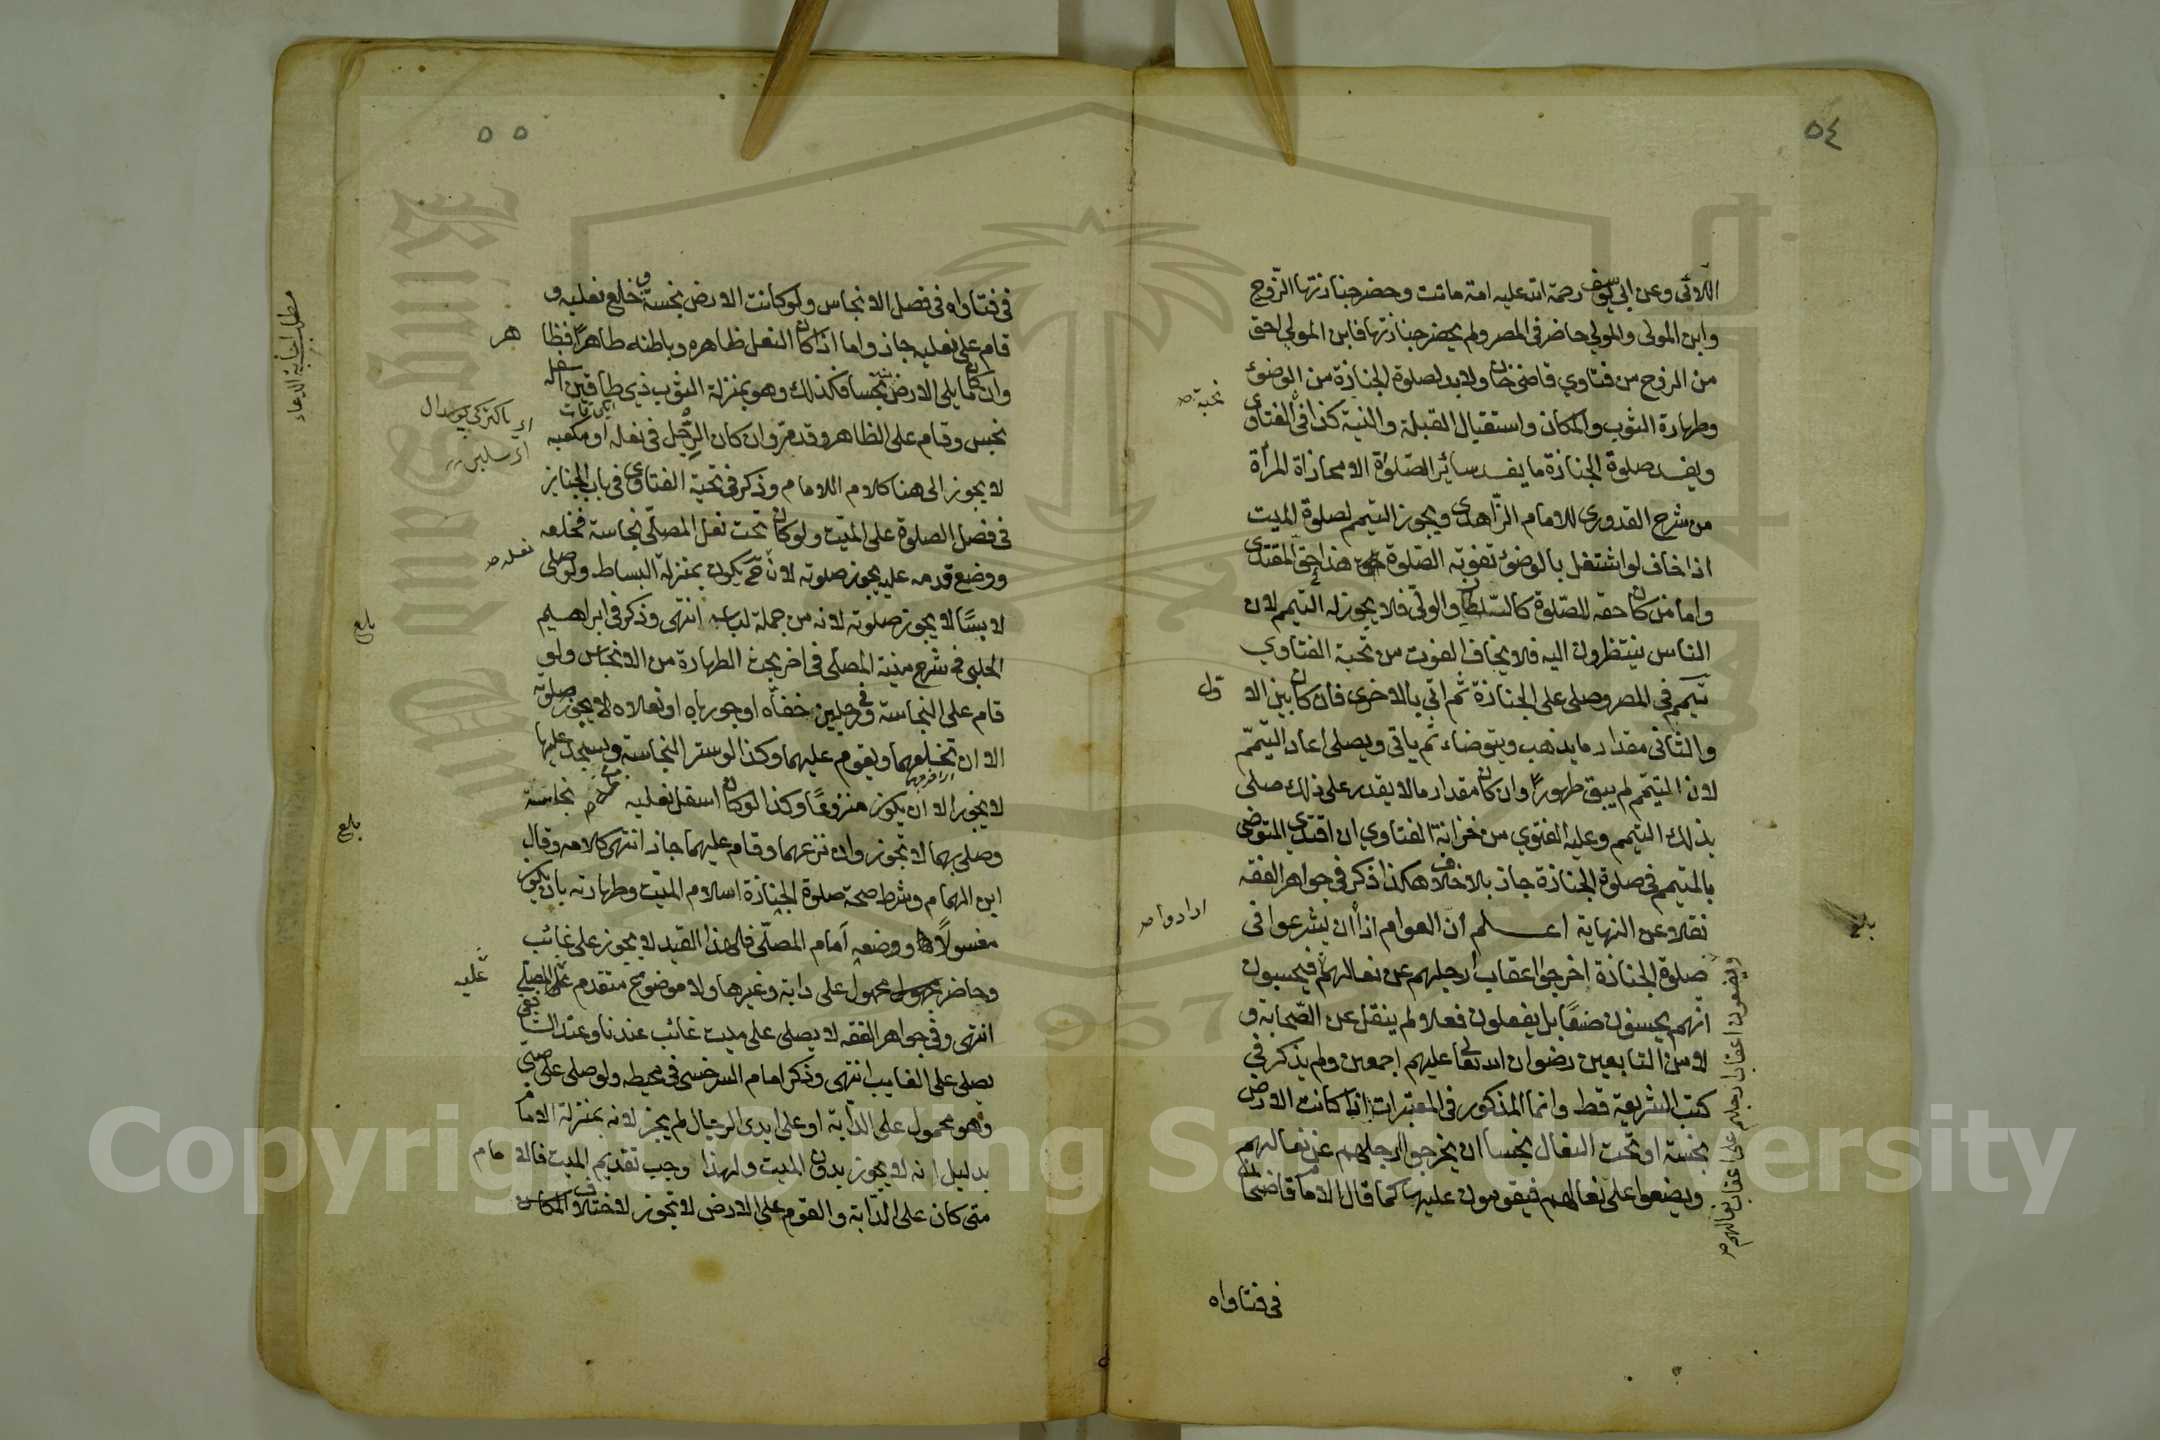 ٥٤
اللاتي وعن ابي يوسف رحمة الله عليه امة ماتت وحضر جنازتها الزوج
وابن المولى والمولي حاضر في المصر ولم يحضر جنازتها فابن المولي احق
من الزوج من فتاوي قاضي خان ولابد لصلوة الجنازة من الوضوئ
وطهارة الثوب والمكان واستقبال القبلة والنية كذا في الفتاوى
ويفسد صلوة الجنازة ما يفسد سائر الصلوة الا محاذاة المرأة
من شرح القدوري للامام الزاهدى ويجوز التيمم لصلوة الميت
اذا خاف لو اشتغل بالوضوئ تفوته الصلوة هذا حق المقتدى
واما من كان حقه للصلوة كالسلطان والولي فلا يجوز له التيمم لان
الناس ينتظرون اليه فلا يخاف الفوت من نخبة الفتاوي
تيمم في المصر وصلى على الجنازة ثم اتي بالاخرى فان كان بين الا
ول
والثاني مقدار ما يذهب ويتوضاء ثم ياتي ويصلى اعاد التيمم
لان التيمم لم يبق طهورا وان كان مقدار ما لا يقدر على ذلك صلى
بذلك التيمم وعليه الفتوي من خزانة الفتاوي ان اقتدى المتوضي
بالمتيمم في صلوة الجنازة جاز بلا خلاف هكذا ذكر في جواهر الفقه
نقلا عن النهاية اعلم ان العوام اذا ان يشرعوا في
ارادوا صح
صلوة الجنازة اخرجوا اعقاب ارجلهم عن نعالهم فيحسبون
ويضعون اعقاب ارجلهم على اعقاب نعالهم صح
انهم يحسنون صنعا بل يفعلون فعلا ولم ينقل عن الصحابة و
لا من التابعين رضوان الله تعالى عليهم اجمعين ولم يذكر في
كتب الشريعة قط وانما المذكور في المعتبرات اذا كانت الارض
نجسة او تحت النعال نجسا ان يخرجوا ارجلهم عن نعالهم
ويضعوا على نعالهم فيقومون عليها كما قال الامام قاضيخان
في فتاواه
٥٥
في فتاواه في فصل الانجاس ولو كانت الارض نجسة وخلع نعليه و
قام على نعليه جاز واما اذا كان النعل ظاهره وباطنه طاهرا فظا
هر
وان كان ما يلى الارض نجسا فكذلك وهو بمنزلة الثوب ذي طاقين اسفله
نجس وقام على الظاهر وقد مر وان كان الرجل في نعله او مكعبه
لا يجوز الى هنا كلام الامام وذكر في نخبة الفتاوى في باب الجنايز
في فصل الصلوة على الميت ولو كان تحت نعل المصلى نجاسة فخلعه
ووضع قدمه عليه يجوز صلوته لان ح يكون بمنزلة البساط ولو صلى
نعله صح
لابسا لا يجوز صلوته لانه من جملة لباسه انتهى وذكر في ابراهيم
بلغ
الحلبي في شرح منية المصلى في اخر بحث الطهارة من الانجاس ولو
قام على النجاسة وفي رجليه خفاه او جورباه او نعلاه لا يجوز صلوته
الا ان تخلعهما ويقوم عليهما وكذا لو ستر النجاسة ويسجد عليها
لا يجوز الا ان يكون منزوعا وكذا لو كان اسفل نعليه نجاسة
بلغ
وصلى بهما لا تجوز وان نزعهما وقام عليهما جاز انتهى كلامه وقال
ابن الهمام وشرط صحة صلوة الجنازة اسلام الميت وطهارته بان يكون
مغسولا ووضعه امام المصلى فلهذا القيد لا يجوز على غائب
وحاضر محمول على دابة وغيرها ولا موضوع متقدم على المصلى
عليه
انتهى وفي جواهر الفقه لا يصلى على ميت غائب عندنا وعند الشافعي
يصلى على الغايب انتهى وذكر امام السرخسى في محيطه ولو صلى على صبي
وهو محمول على الدابة او على ايدى الرجال لم يجز لانه بمنزلة الامام
بدليل انه لا يجوز بدون الميت ولهذا وجب تقديم الميت فالا مام
متى كان على الدابة والقوم على الارض لا تجوز لاختلاف المكان
Copyright © King Saud University
1957